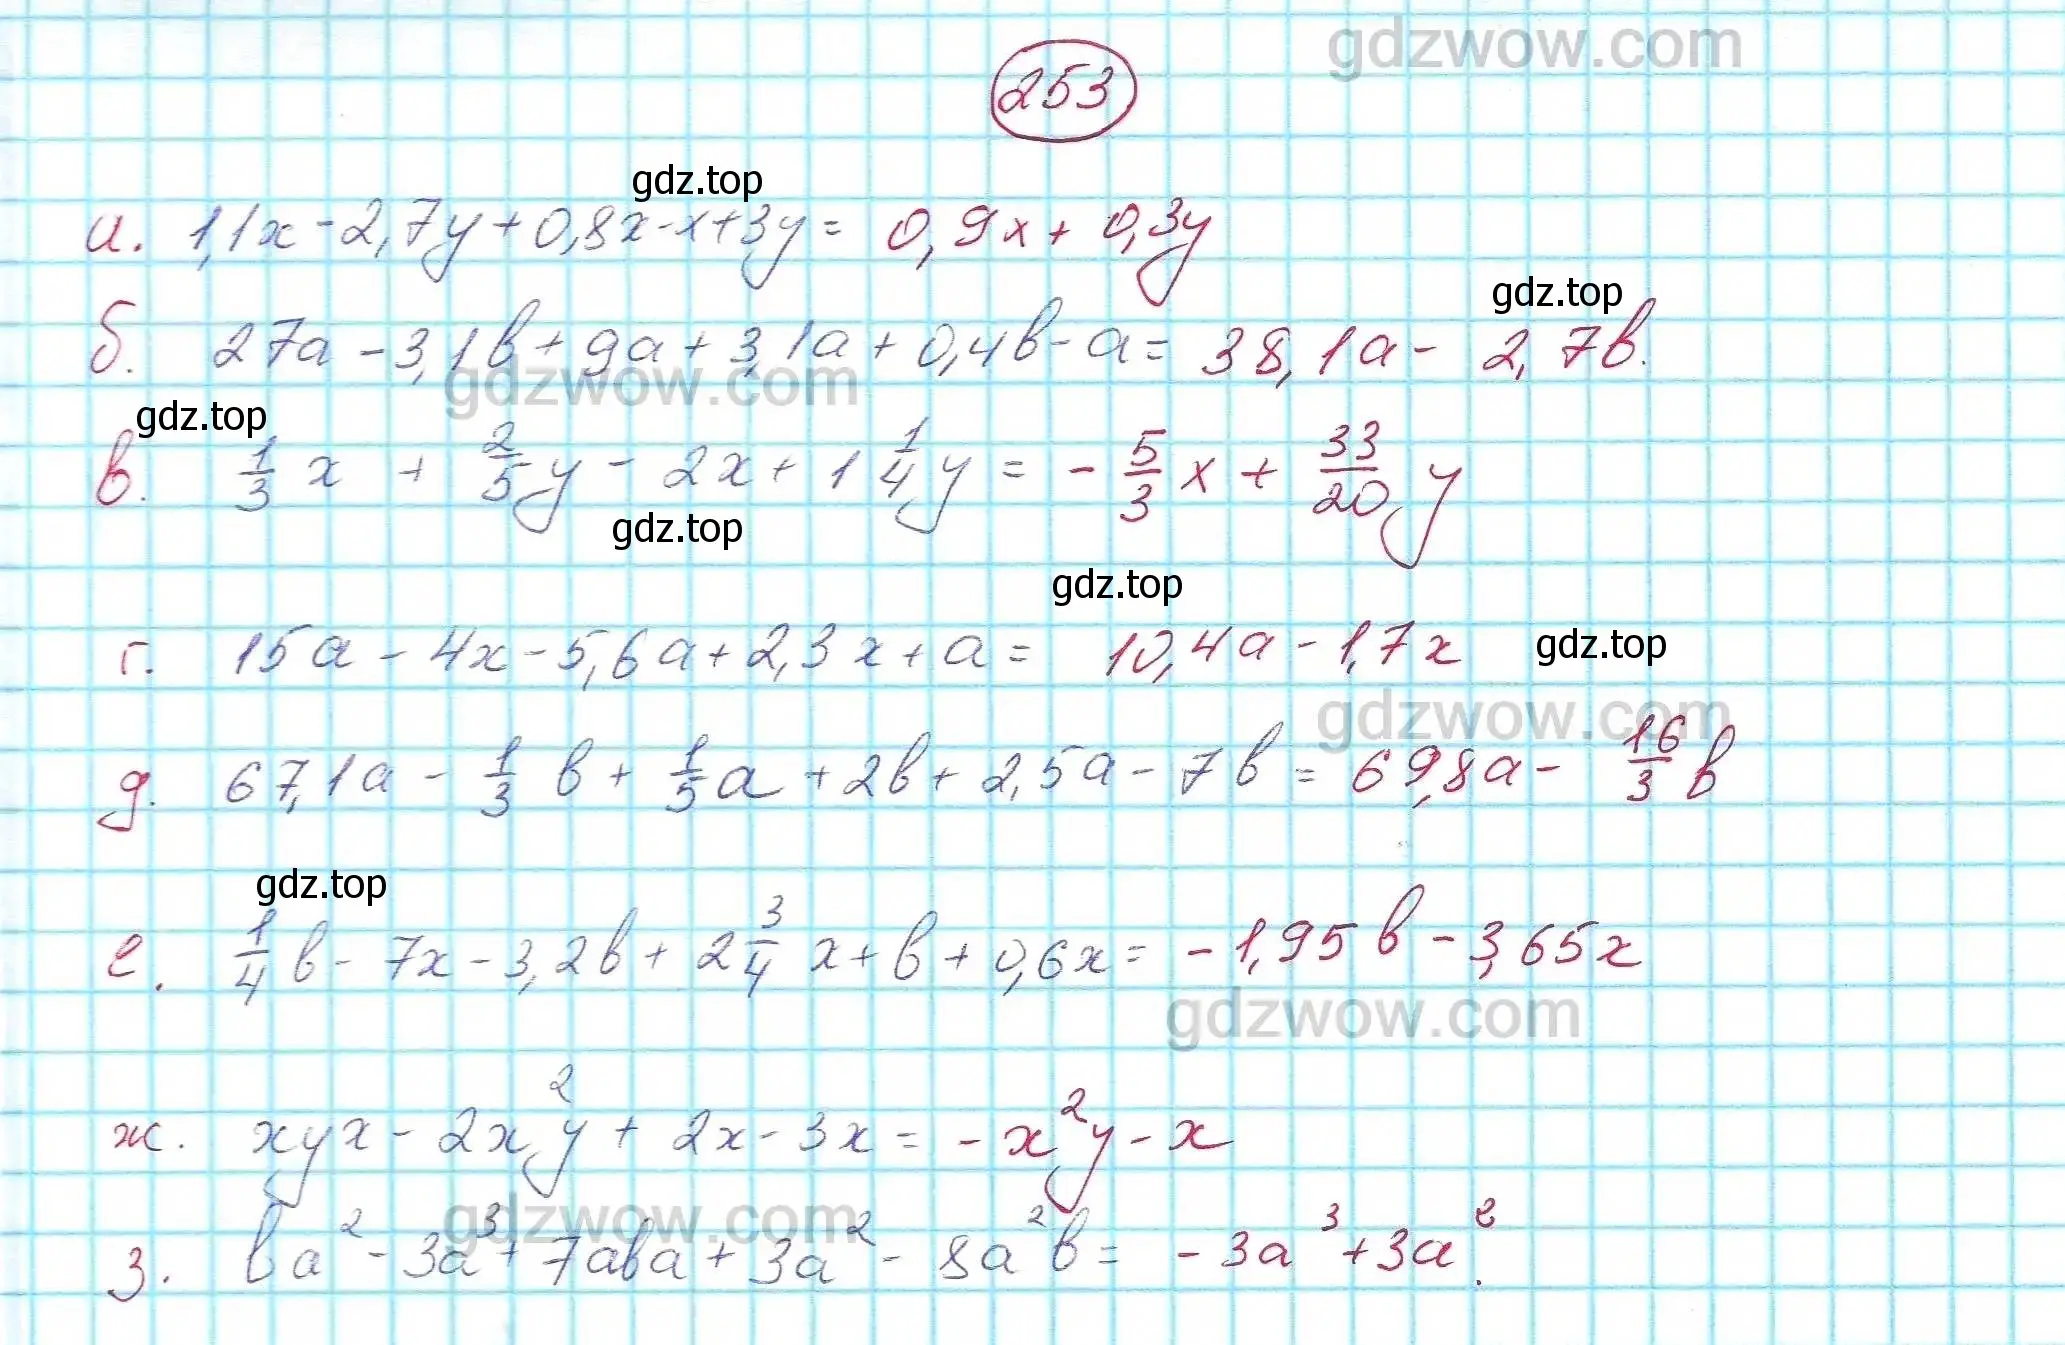 gdzwow.com
253
gdz.top
а. 1,1x - 2,7y + 0,8x - x + 3y = 0,9x + 0,3y
gdz.top
б. 27a - 3,1b + 9a + 3,1a + 0,4b - a = 38,1a - 2,7b.
gdzwow.com
gdz.top
в. 1/3 x + 2/5 y - 2x + 1 1/4 y = - 5/3 x + 33/20 y
gdz.top
gdz.top
г. 15a - 4x - 5,6a + 2,3x + a = 10,4a - 1,7x
gdz.top
gdzwow.com
д. 67,1a - 1/3 b + 1/5 a + 2b + 2,5a - 7b = 69,8a - 16/3 b
gdz.top
е. 1/4 b - 7x - 3,2b + 2 3/4 x + b + 0,6x = - 1,95b - 3,65x
gdzwow.com
ж. xyx - 2x²y + 2x - 3x = - x²y - x
gdzwow.com
з. ba² - 3a³ + 7aba + 3a² - 8a²b = - 3a³ + 3a².